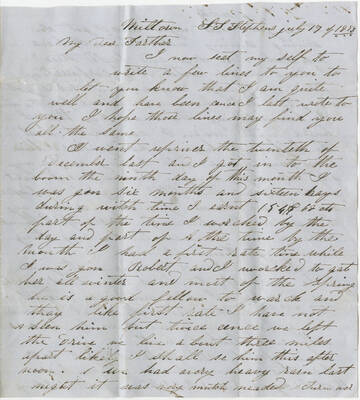 Milltown St Stephens july 17 of 18
My dear Farther
I now seat my self to
write a few lines to you to
let you know that I am quite
well and have been cence I last wrote to
you I hope those lines may find you
all the same
I went upriver the twenteth of
December last an I got in to the
boom the ninth day of this month I
was gon six months and sixteen days
during witch time I earnt
part of the time I worcked by the
day and part of the time by the
month I had a first rate time while
I was gon Robert and I worcked to
her all winter and most of the Spring
he is a good fellow to worck and
they like first rate I have not
Seen him but twice cence we left
the Drive we live about three miles
apart likely I shall se him this after
noon. we had avery heavy rain last
night it was very mutch needed